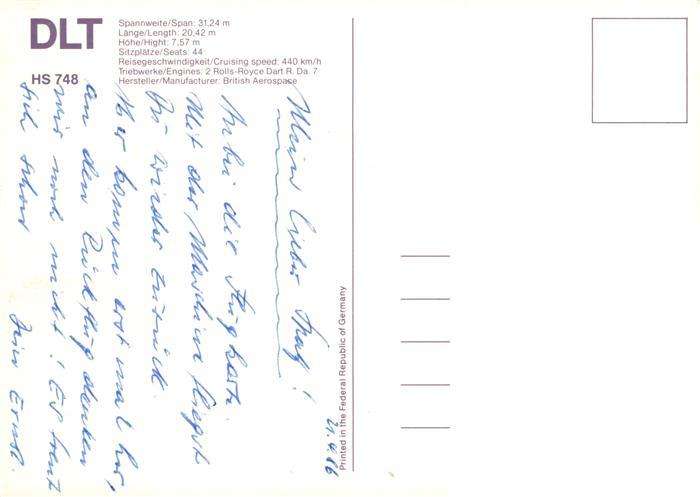 DLT
HS 748
Spannweite/Span: 31,24 m
Länge/Length: 20,42 m
Höhe/Hight: 7,57 m
Sitzplätze/Seats: 44
Reisegeschwindigkeit/Cruising speed: 440 km/h
Triebwerke/Engines: 2 Rolls-Royce Dart R. Da. 7
Hersteller/Manufacturer: British Aerospace
21.4.86
Mein lieber !
Anbei die Flugkarte.
Mit der Maschine fliegst
Du wieder zurück.
Aber komm erst mal her,
an den Rückflug denken
wir noch nicht! Es freut
sich schon
Dein Ernst.
Printed in the Federal Republic of Germany